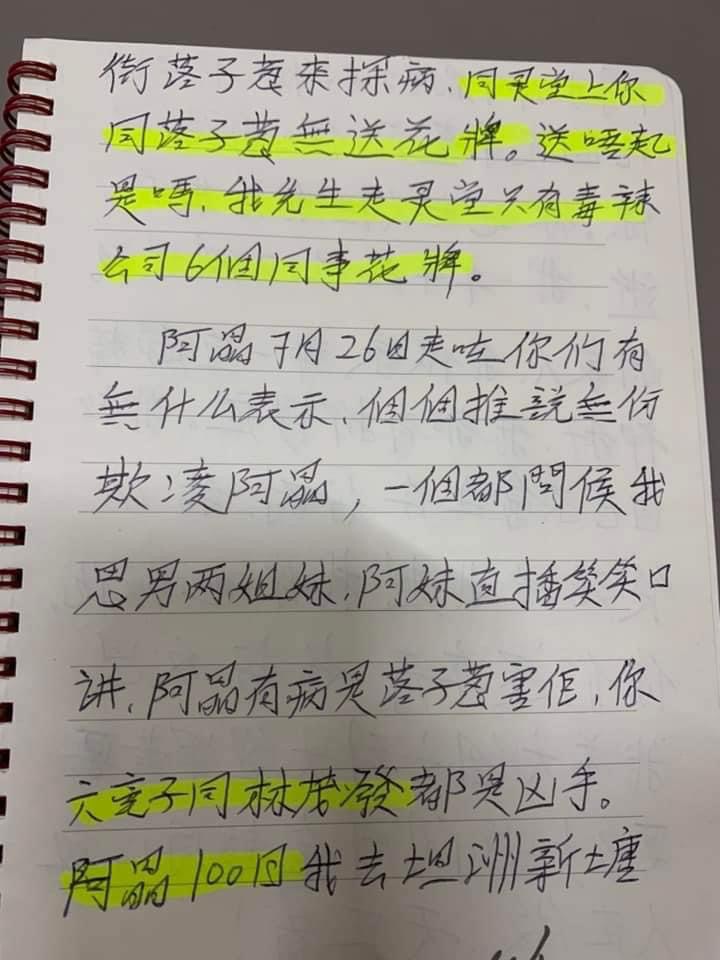 街落子葱来探病、同灵堂上你
同落子葱無送花牌。送唔起
是嗎、我先生走灵堂只有毒辣
公司6個同事花牌。
阿晶7月26日走咗你们有
無什么表示、個個推說無份
欺凌阿晶，一個都問候我
思男两姐妹、阿妹直播笑笑口
讲、阿晶有病是落子葱害佢、你
六壳子同林茂發都是凶手。
阿晶100日我去坦洲新墟